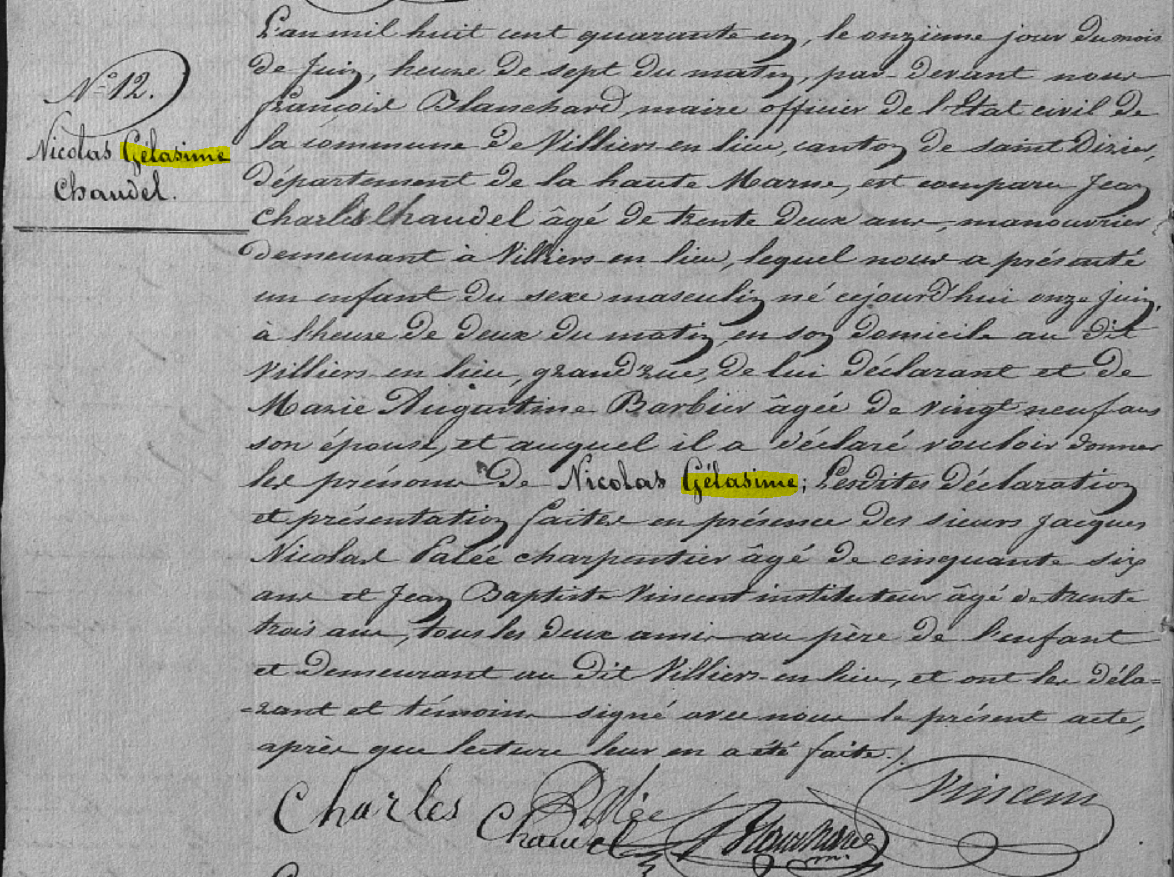 N° 12.
Nicolas Gélasime
Chaudel.
L'an mil huit cent quarante un, le onzième jour du mois
de Juin, heure de sept du matin, par-devant nous
françois Blanchard, maire officier de l'Etat civil de
la commune de Villiers-en-lieu, canton de saint Dizier,
département de la haute Marne, est comparu Jean
Charles Chaudel âgé de trente deux ans, manouvrier,
demeurant à Villiers en lieu, lequel nous a présenté
un enfant du sexe masculin né cejourd'hui onze juin,
à l'heure de deux du matin, en son domicile au dit
Villiers-en-lieu, grand'rue, de lui déclarant et de
Marie Augustine Barbier âgée de vingt neuf ans
son épouse, et auquel il a déclaré vouloir donner
les prénoms de Nicolas Gélasime; Lesdites déclaration
et présentation faites en présence des sieurs Jacques
Nicolas charpentier âgé de cinquante six
ans et Jean Baptiste Vincent instituteur âgé de trente
trois ans, tous les deux amis au père de l'enfant
et demeurant au dit Villiers-en-lieu, et ont les déla=
=rant et témoins signé avec nous le présent acte,
après que lecture leur en a été faite./.
Charles Chaudel Blanchard Vincent